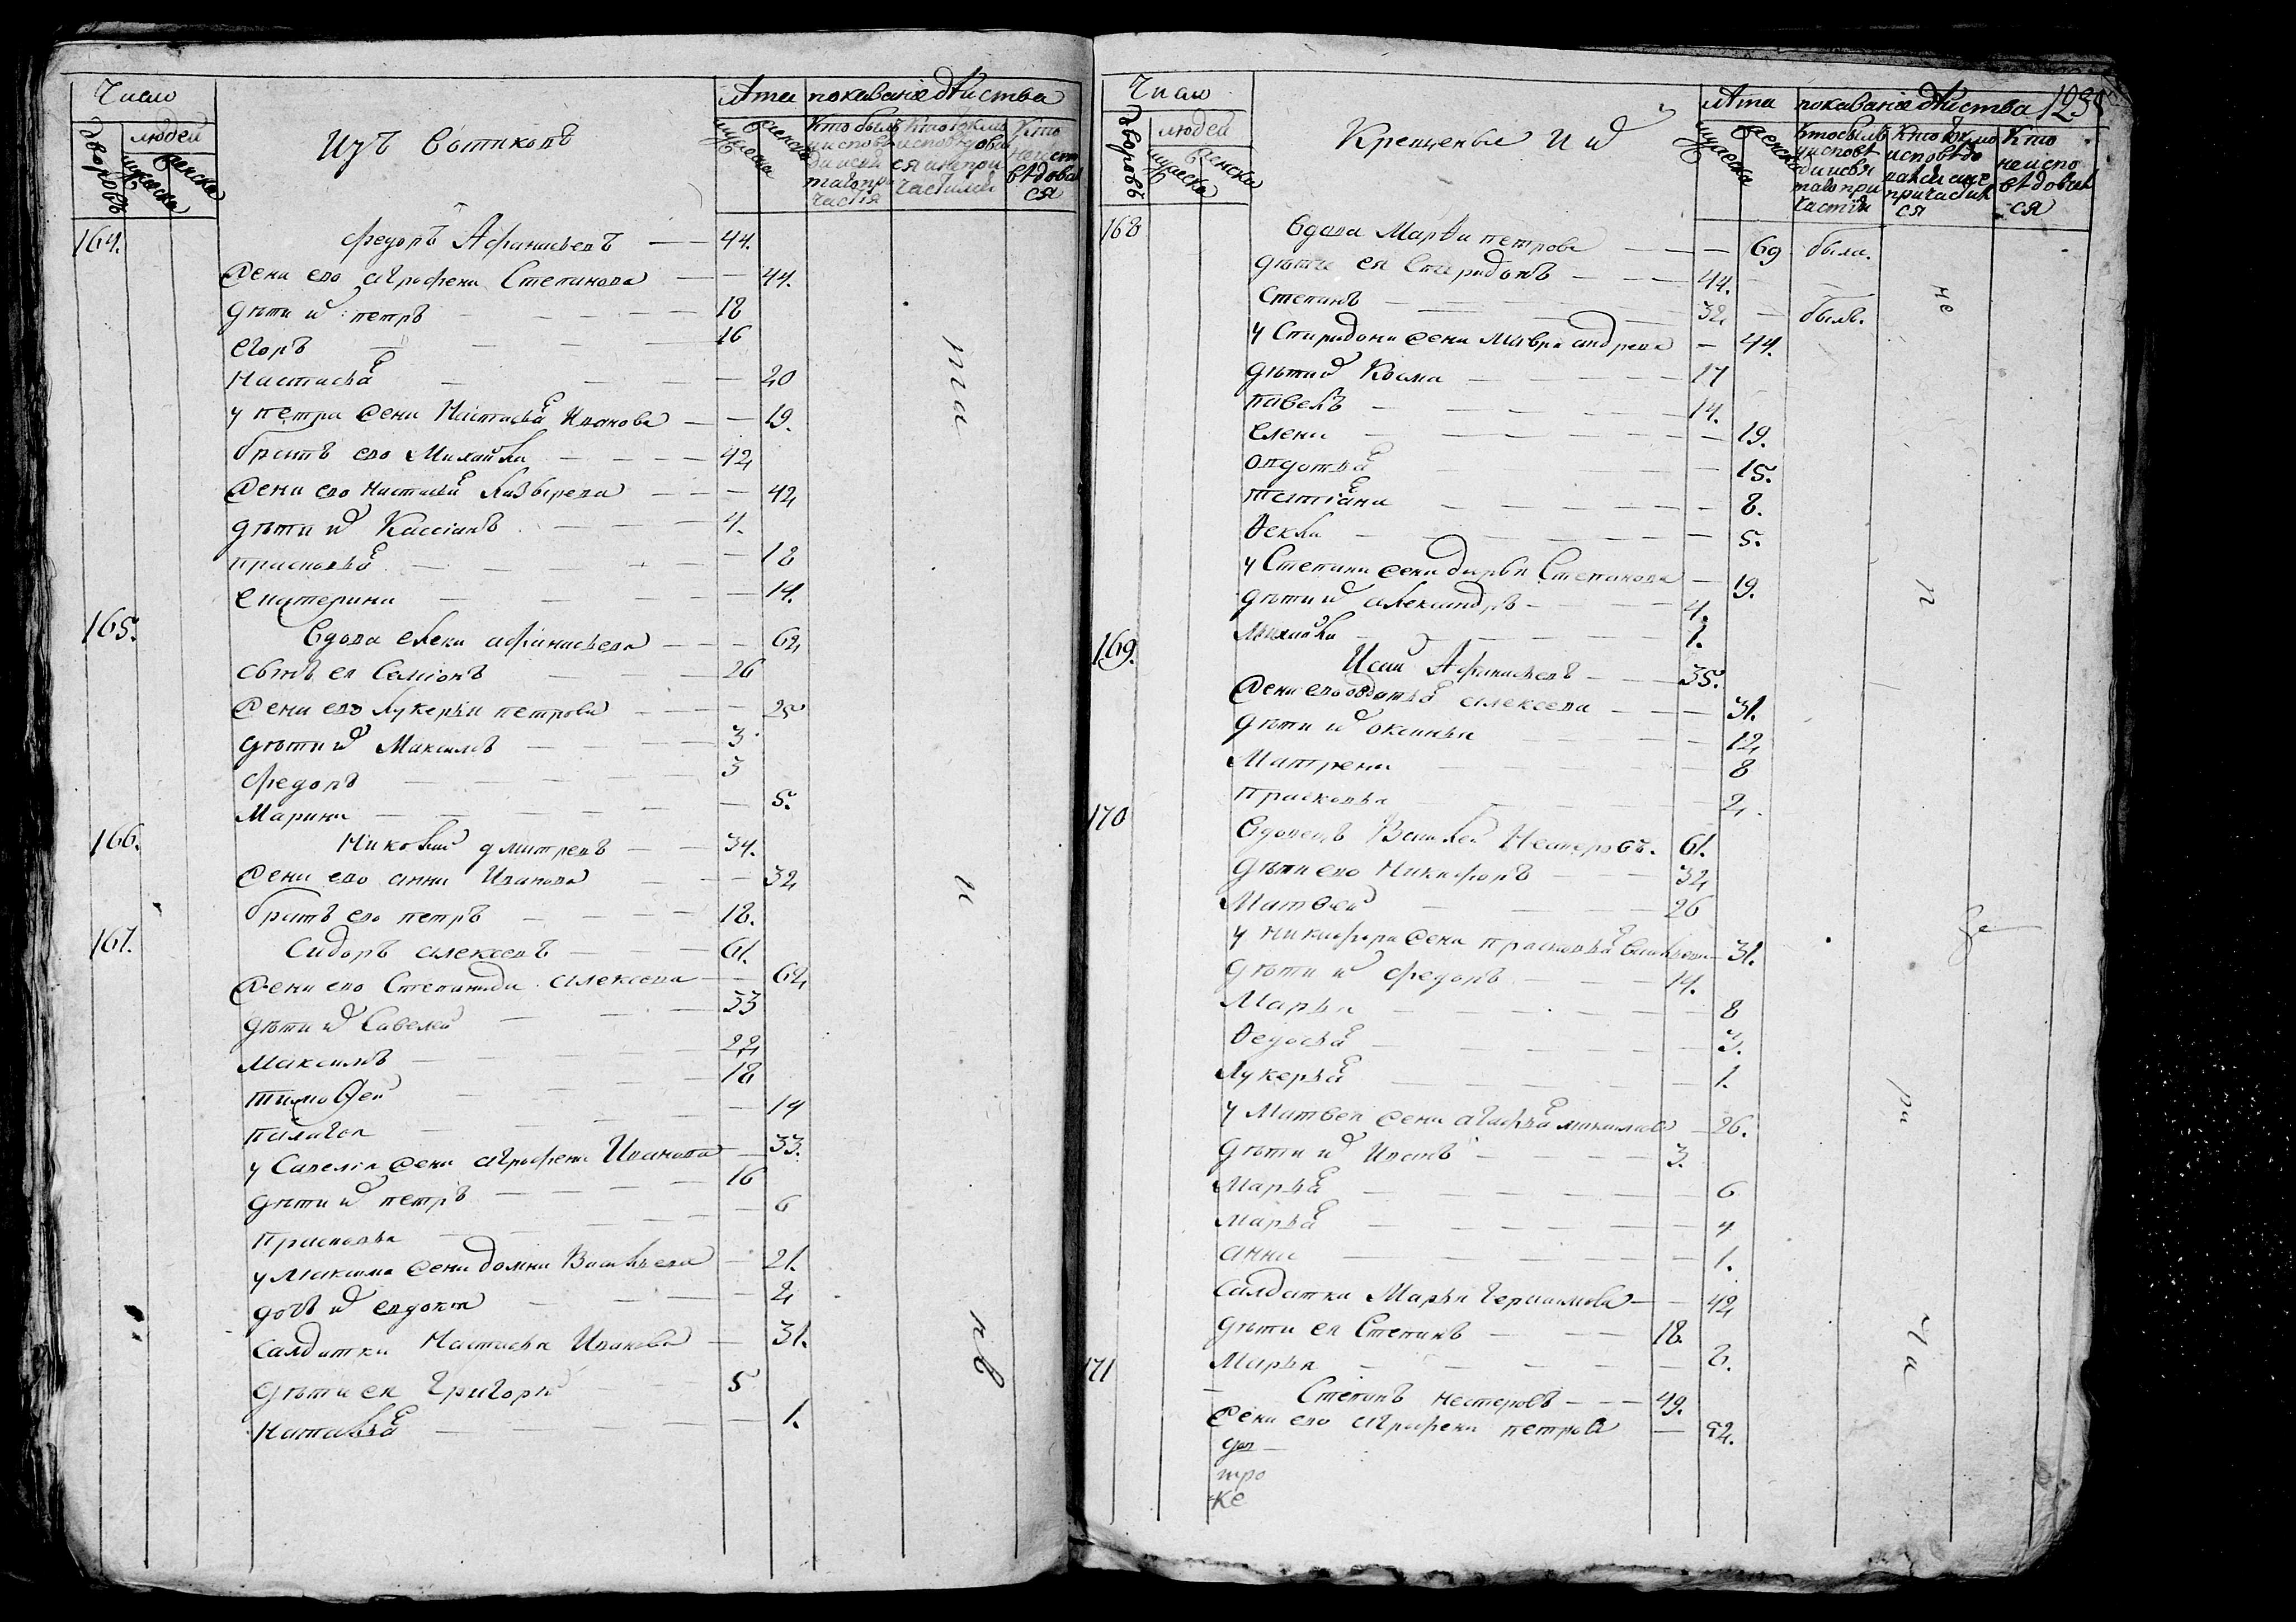 Число
Лѣта показание дѣиства
дворовъ
людей
мужеска
женска
Изъ вотяковъ
мужеска
женска
Кто былъ
у исповѣ
ди и свя
таго при
частія
Кто токмо
исповѣдовал
ся а не при
частился
Кто
не исп
вѣдовал
ся
164. Федоръ Афанасьевъ 44.
Жена ево Аграфена Степанова 44.
дѣти их петръ 18
Егоръ 16
Настасья 20
у петра жена Настасья Иванова 19.
братъ ево Михайла 42
Жена ево Настасья Лазырева 42
дѣти их Кассіанъ 4.
прасковья 18
Екатерина 14.
165. Вдова елена афанасьева 62
сынъ ея Семіонъ 26
Жена ево Лукерья петрова 25
дѣти их Максимъ 3
Федоръ 3
Марина 5.
166. Николай дмитревъ 34.
Жена ево анна Иванова 32
братъ ево петръ 18.
167. Сидоръ алексеевъ 61.
Жена ево Степанида алексеева 62
дѣти их Савелей 33
Максимъ 22
тимоѳей 18
палагея 14
у Савелія жена аграфена Иванова 33.
дѣти их петръ 16
Прасковья 6
у Максима жена домна Васильева 21.
дочь их евдокия 2
Салдатка Настасья Иванова 31.
дѣти ея Григорій 5
Наталья 1.
Число
Лѣта показание дѣиства 123
дворовъ
людей
мужеска
женска
Крещеныя И их
мужеска
женска
Кто былъ
у исповѣ
ди и свя
таго при
частія
Кто токмо
исповѣдо
вался а не
причастил
ся
Кто
не испо
вѣдовал
ся
168 Вдова Марѳа петрова 69 была.
дѣти ея Спиридонъ 44.
Степанъ 32 былъ.
не
у Спиридона жена Мавра андреева 44.
дѣти их Козма 17
павелъ 14.
елена 19.
Овдотья 15.
татіана 8.
Ѳекла 5.
у Степана жена дарья Степанова 19.
дѣти их александръ 4.
Михайла 1.
169. Исай Афанасьевъ 35.
Жена ево овдотья алексеева 31.
дѣти их оксинья 12
Матрена 8
прасковья 2.
170 Вдовецъ Василей Нестеровъ. 61.
дѣти ево Никифоръ 32
Матвей 26
у никифора жена прасковья Васильева 31.
дѣти их федоръ 14.
Марья 8
Ѳедосья 3.
Лукерья 1.
у Матвея жена агафья 26.
дѣти их Иванъ 3.
Марья 6
Марья 4
анна 1.
Салдатка Марья Герасимова 42
дѣти ея Степанъ 18.
Марья 8.
171 Степанъ нестеровъ 49.
Жена ево аграфена петрова 52.